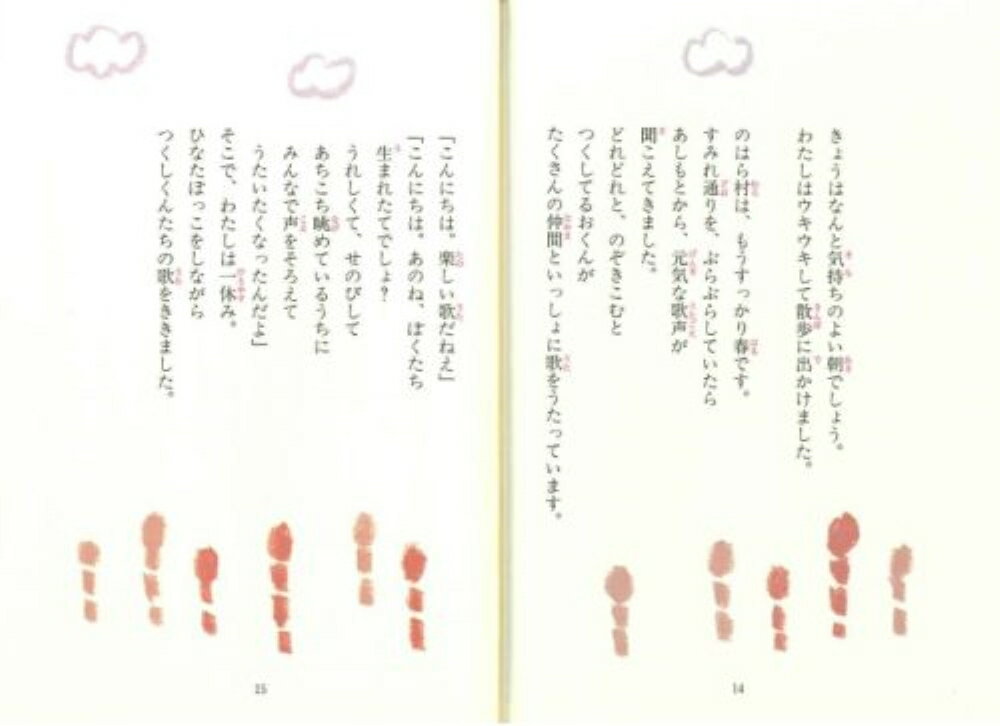 きょうはなんと気持ちのよい朝でしょう。
わたしはウキウキして散歩に出かけました。
のはら村は、もうすっかり春です。
すみれ通りを、ぶらぶらしていたら
あしもとから、元気な歌声が
聞こえてきました。
どれどれと、のぞきこむと
つくしてるおくんが
たくさんの仲間といっしょに歌をうたっています。
14
「こんにちは。楽しい歌だねえ」
「こんにちは。あのね、ぼくたち
生まれたてでしょ?
うれしくて、せのびして
あちこち眺めているうちに
みんなで声をそろえて
うたいたくなったんだよ」
そこで、わたしは一休み。
ひなたぼっこをしながら
つくしくんたちの歌をききました。
15